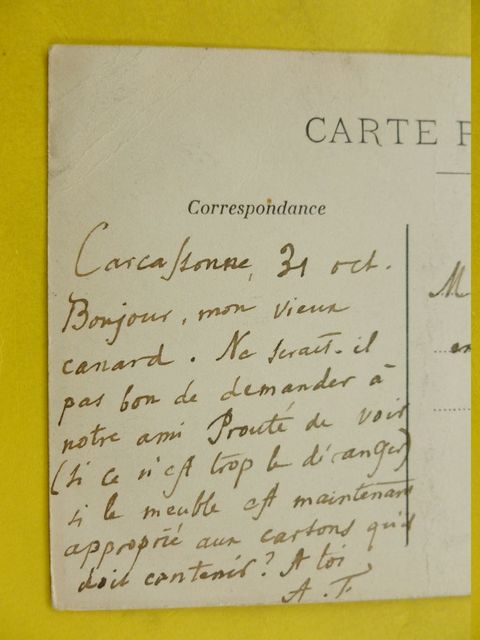 CARTE P
Correspondance
Carcassonne, 31 oct.
Bonjour, mon vieux
canard. Ne serait-il
pas bon de demander à
notre ami Prouté de voir
(si ce n'est trop le déranger)
si le meuble est maintenant
approprié aux cartons qu'il
doit contenir? A toi
A. F.
M
en